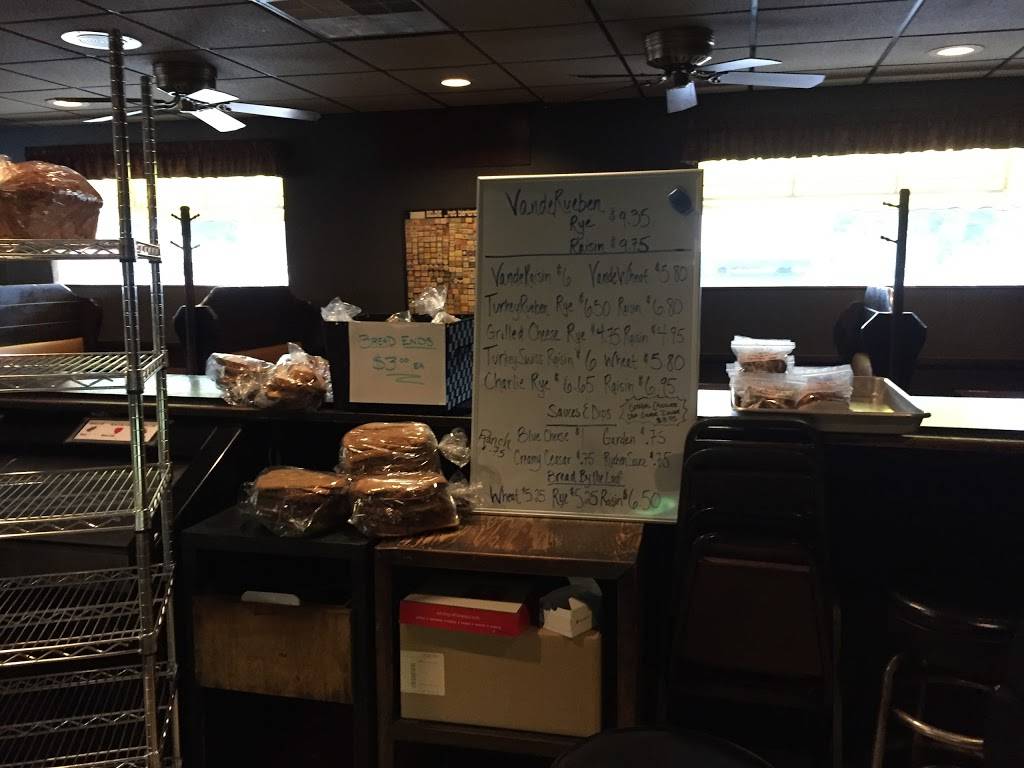 VandeRueben
Rye $9.35
Raisin $9.75
VandeRaisin $6 VandeWheat $5.80
TurkeyRueben Rye $6.50 Raisin $6.80
Grilled Cheese Rye $4.75 Raisin $4.95
Turkey Swiss Raisin $6 Wheat $5.80
Charlie Rye $6.65 Raisin $6.95
Sauces & Dips
Ranch .75
Blue Cheese $1 Garden .75
Creamy Caesar $.75 Rueben Sauce $.75
Bread By The Loaf
Wheat $5.25 Rye $5.25 Raisin $6.50
BREAD ENDS
$3.00 EA